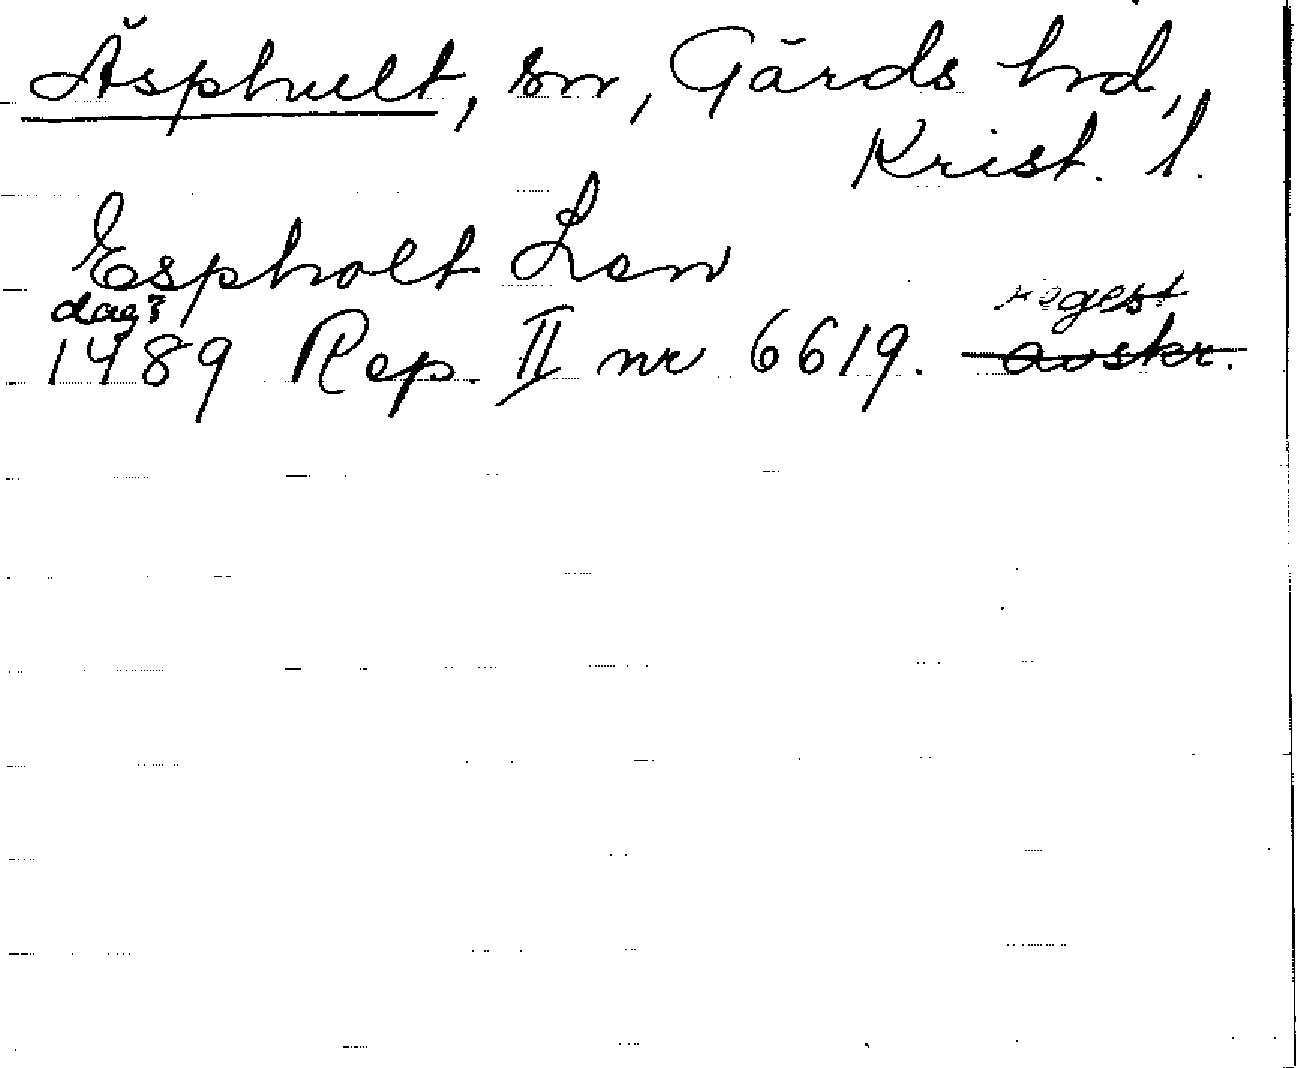 Äsphult, sn, Gärds hd,
Krist. l.
Espholt Len
dag? regest
1489 Rep. II nr 6619. avskr.